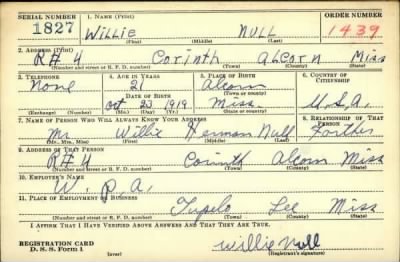 SERIAL NUMBER 1. NAME (Print) ORDER NUMBER
1827 Willie Null 1439
(First) (Middle) (Last)
2. ADDRESS (Print)
R#4 Corinth Alcorn Miss
(Number and street or R. F. D. number) (Town) (County) (State)
3. TELEPHONE 4. AGE IN YEARS 5. PLACE OF BIRTH 6. COUNTRY OF CITIZENSHIP
None 21 Alcorn
DATE OF BIRTH (Town or county)
Oct 23 1919 Miss U.S.A.
(Exchange) (Number) (Mo.) (Day) (Yr.) (State or country)
7. NAME OF PERSON WHO WILL ALWAYS KNOW YOUR ADDRESS 8. RELATIONSHIP OF THAT PERSON
Mr Willie Herman Null Farther
(Mr., Mrs., Miss) (First) (Middle) (Last)
9. ADDRESS OF THAT PERSON
R#4 Corinth Alcorn Miss
(Number and street or R. F. D. number) (Town) (County) (State)
10. EMPLOYER'S NAME
W. P. A.
11. PLACE OF EMPLOYMENT OR BUSINESS
Tupelo Lee Miss
(Number and street or R. F. D. number) (Town) (County) (State)
I AFFIRM THAT I HAVE VERIFIED ABOVE ANSWERS AND THAT THEY ARE TRUE.
REGISTRATION CARD
D. S. S. Form 1 Willie Null
(over) (Registrant's signature)